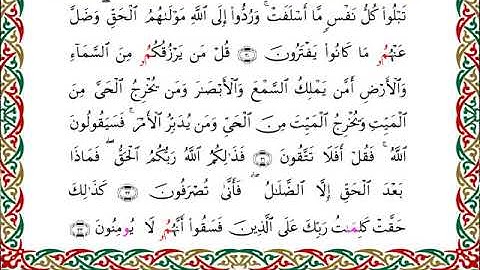 تَبْلُواْ كُلُّ نَفْسٖ مَّآ أَسْلَفَتْۚ وَرُدُّوٓاْ إِلَى ٱللَّهِ مَوْلَىٰهُمُ ٱلْحَقِّۖ وَضَلَّ
عَنْهُمُۥ مَا كَانُواْ يَفْتَرُونَ ۝٣٠ قُلْ مَن يَرْزُقُكُمُۥ مِنَ ٱلسَّمَآءِ
وَٱلْأَرْضِ أَمَّن يَمْلِكُ ٱلسَّمْعَ وَٱلْأَبْصَٰرَ وَمَن يُخْرِجُ ٱلْحَىَّ مِنَ
ٱلْمَيْتِ وَيُخْرِجُ ٱلْمَيْتَ مِنَ ٱلْحَىِّ وَمَن يُدَبِّرُ ٱلْأَمْرَۚ فَسَيَقُولُونَ
ٱللَّهُۚ فَقُلْ أَفَلَا تَتَّقُونَ ۝٣١ فَذَٰلِكُمُ ٱللَّهُ رَبُّكُمُ ٱلْحَقُّۖ فَمَاذَا
بَعْدَ ٱلْحَقِّ إِلَّا ٱلضَّلَٰلُۖ فَأَنَّىٰ تُصْرَفُونَ ۝٣٢ كَذَٰلِكَ
حَقَّتْ كَلِمَٰتُ رَبِّكَ عَلَى ٱلَّذِينَ فَسَقُوٓاْ أَنَّهُمُۥ لَا يُومِنُونَ ۝٣٣